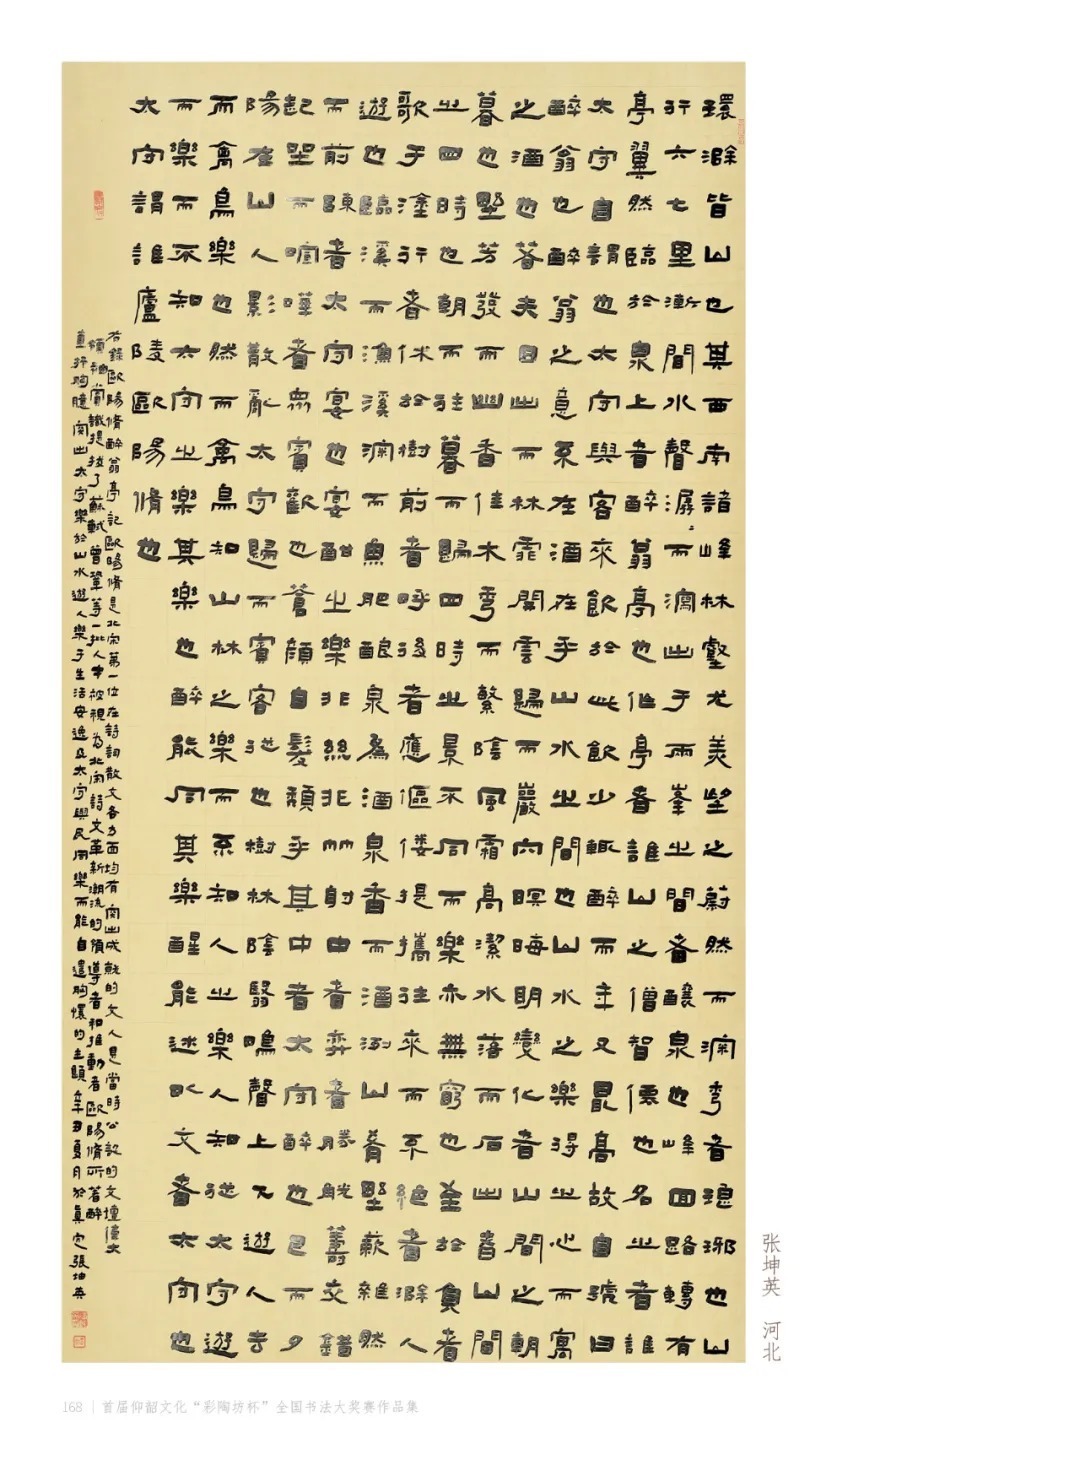 環滁皆山也其西南諸峰林壑尤美望之蔚然而深秀者琅琊也山
行六七里漸聞水聲潺〻而瀉出于兩峯之間者釀泉也峰回路轉有
亭翼然臨於泉上者醉翁亭也作亭者誰山之僧智僊也名之者誰
太守自謂也太守與客來飲於此飲少輒醉而年又最高故自號曰
醉翁也醉翁之意不在酒在乎山水之間也山水之樂得之心而寓
之酒也若夫日出而林霏開雲歸而巖穴暝晦明變化者山間之朝
暮也野芳發而幽香佳木秀而繁陰風霜高潔水落而石出者山間
之四時也朝而往暮而歸四時之景不同而樂亦無窮也至於負者
歌于塗行者休於樹前者呼後者應傴僂提攜往來而不絕者滁人
遊也臨溪而漁溪深而魚肥釀泉為酒泉香而酒洌山肴野蔌雜然
而前陳者太守宴也宴酣之樂非絲非竹射中者弈者勝觥籌交錯
起坐而喧嘩者眾賓歡也蒼顏白髮頹乎其中者太守醉也已而夕
陽在山人影散亂太守歸而賓客從也樹林陰翳鳴聲上下遊人去
而禽鳥樂也然而禽鳥知山林之樂而不知人之樂人知從太守遊
而樂而不知太守之樂其樂也醉能同其樂醒能述以文者太守也
太守謂誰廬陵歐陽脩也
右錄歐陽脩醉翁亭記歐陽脩是北宋第一位在詩詞散文各方面均有突出成就的文人是當時公認的文壇偉大
領袖賞識提拔了蘇軾曾鞏等一批人才被視為北宋詩文革新潮流的領導者和推動者歐陽脩所著醉
直抒胸臆突出太守樂於山水遊人樂于生活安逸及太守與民同樂而能自遣胸懷的主題辛丑夏月於真定張坤英
张坤英 河北
168 | 首届仰韶文化“彩陶坊杯”全国书法大奖赛作品集